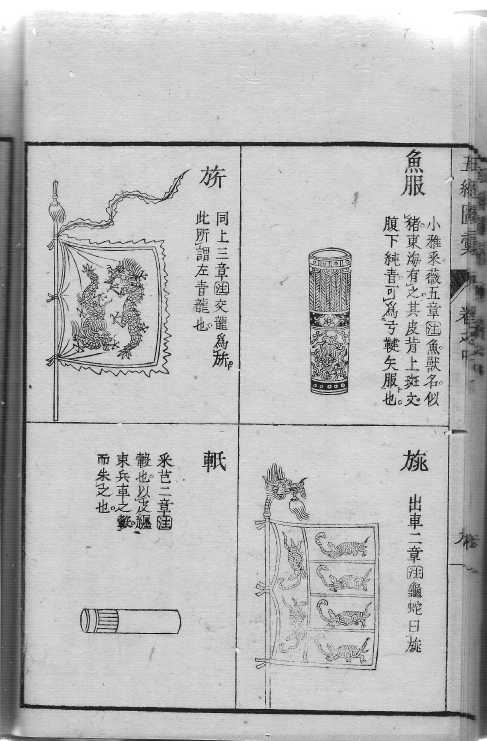 魚服
小雅采薇五章注魚獸名似
猪東海有之其皮背上斑文
腹下純青可為弓鞬矢服也
旐
出車二章注龜蛇曰旐
旂
同上三章注交龍為旂
此所謂左青龍也
軝
采芑三章注
轂也以皮纏
束兵車之轂
而朱之也
五經圖彙